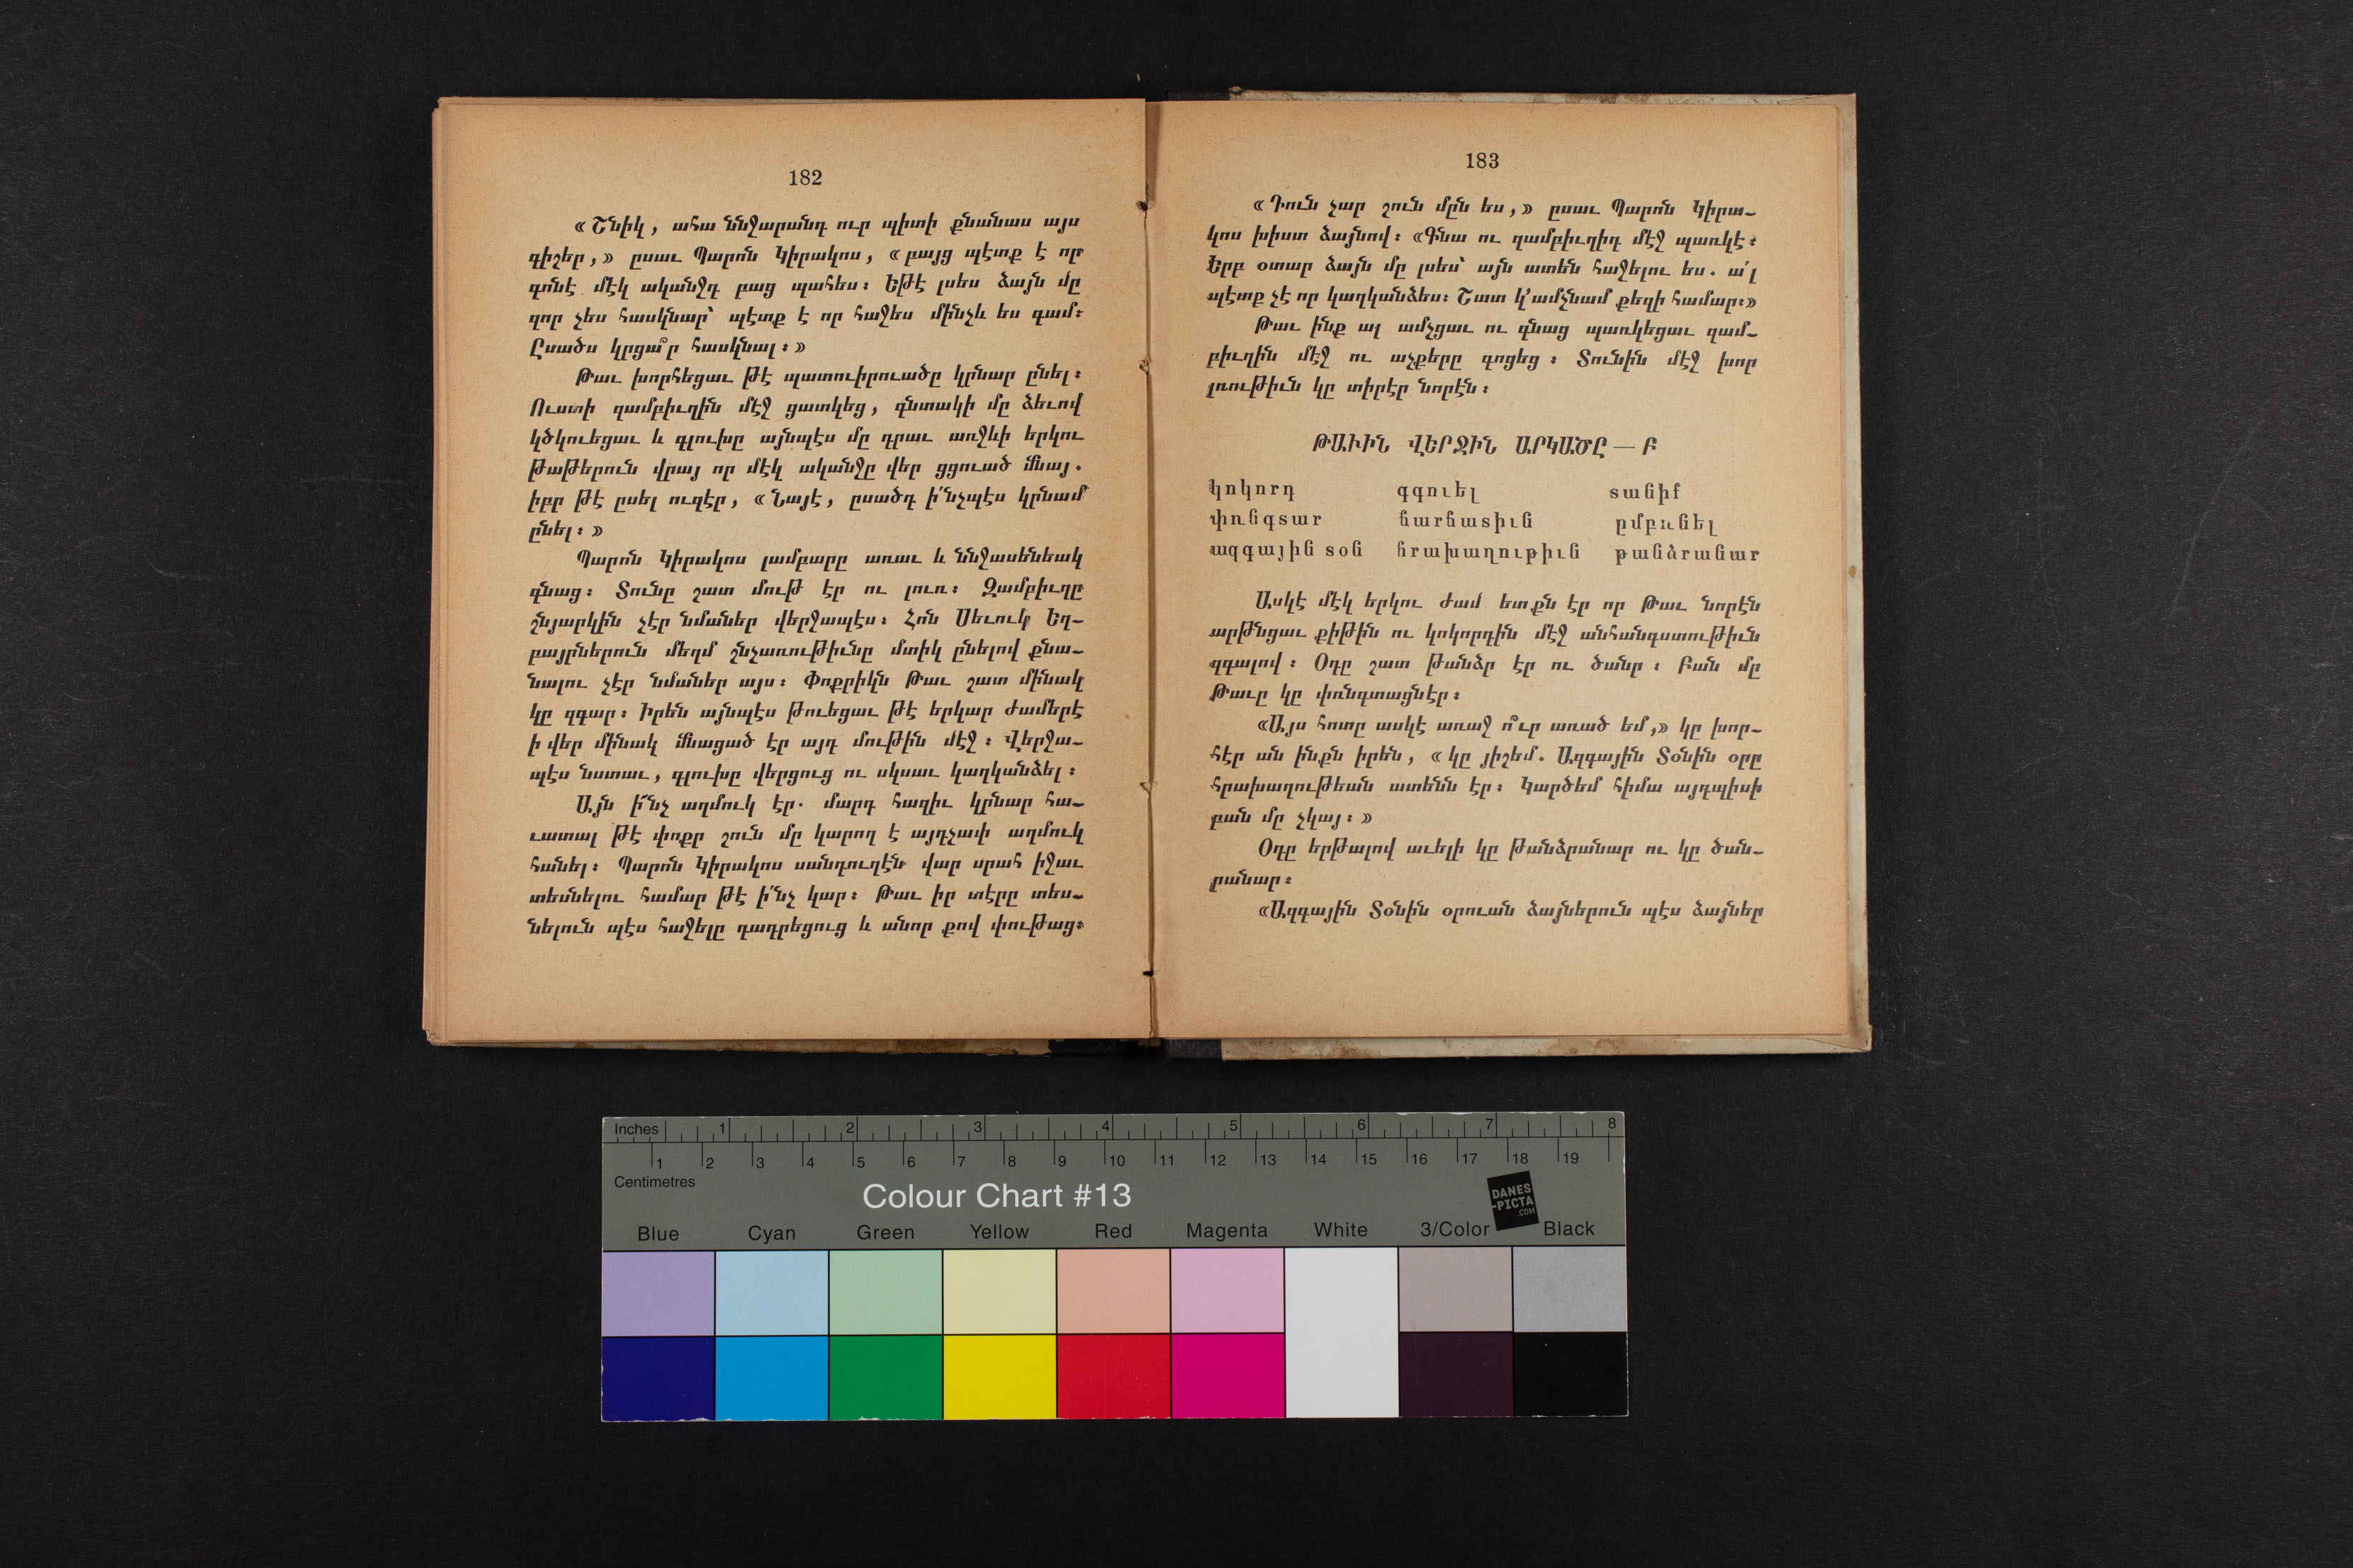 182
«Շնիկ, ահա ննջարանդ ուր պիտի քնանաս այս
գիշեր,» ըսաւ Պարոն Կիրակոս, «բայց պէտք է որ
գոնէ մէկ ականջդ բաց պահես։ Եթէ լսես ձայն մը
զոր չես հասկնար՝ պէտք է որ հաջես մինչև ես գամ։
Ըսածս կրցա՞ր հասկնալ։»
Թաւ խորհեցաւ թէ պատուիրուածը կրնար ընել։
Ուստի զամբիւղին մէջ ցատկեց, գնտակի մը ձեւով
կծկուեցաւ և գլուխը այնպէս մը դրաւ առջևի երկու
թաթերուն վրայ որ մէկ ականջը վեր ցցուած մնայ.
իբր թէ ըսել ուզէր, «Նայէ, ըսածդ ի՛նչպէս կրնամ
ընել։»
Պարոն Կիրակոս լամբարը առաւ և ննջասենեակ
գնաց։ Տունը շատ մութ էր ու լուռ։ Զամբիւղը
շնյարկին չէր նմաներ վերջապէս։ Հոն Սեւուկ Եղ-
բայրներուն մեղմ շնչառութիւնը մտիկ ընելով քնա-
նալու չէր նմաներ այս։ Փոքրիկն Թաւ շատ մինակ
կը զգար։ Իրեն այնպէս թուեցաւ թէ երկար ժամերէ
ի վեր մինակ մնացած էր այդ մութին մէջ։ Վերջա-
պէս նստաւ, գլուխը վերցուց ու սկսաւ կաղկանձել։
Այն ի՜նչ աղմուկ էր. մարդ հազիւ կրնար հա-
ւատալ թէ փոքր շուն մը կարող է այդչափ աղմուկ
հանել։ Պարոն Կիրակոս սանդուղէն վար սրահ իջաւ
տեսնելու համար թէ ի՛նչ կար։ Թաւ իր տէրը տես-
նելուն պէս հաջելը դադրեցուց և անոր քով փութաց։
183
«Դուն չար շուն մըն ես,» ըսաւ Պարոն Կիրա-
կոս խիստ ձայնով։ «Գնա ու զամբիւղիդ մէջ պառկէ։
Երբ օտար ձայն մը լսես՝ այն ատեն հաջելու ես. ա՛լ
պէտք չէ որ կաղկանձես։ Շատ կ՚ամչնամ քեզի համար։»
Թաւ ինք ալ ամչցաւ ու գնաց պառկեցաւ զամ-
բիւղին մէջ ու աչքերը գոցեց։ Տունին մէջ խոր
լռութիւն կը տիրէր նորէն։
ԹԱՒԻՆ ՎԵՐՋԻՆ ԱՐԿԱԾԸ — Բ
կոկորդ գգուել տանիք
փռնգտար ճարճատիւն ըմբռնել
ազգային տօն հրախաղութիւն թանձրանար
Ասկէ մէկ երկու ժամ ետքն էր որ Թաւ նորէն
արթնցաւ քիթին ու կոկորդին մէջ անհանգստութիւն
զգալով։ Օդը շատ թանձր էր ու ծանր։ Բան մը
Թաւը կը փռնգտացնէր։
«Այս հոտը ասկէ առաջ ո՞ւր առած եմ,» կը խոր-
հէր ան ինքն իրեն, «կը յիշեմ. Ազգային Տօնին օրը
հրախաղութեան ատենն էր։ Կարծեմ հիմա այդպիսի
բան մը չկայ։»
Օդը երթալով աւելի կը թանձրանար ու կը ծան-
րանար։
«Ազգային Տօնին օրուան ձայներուն պէս ձայներ
Inches 1 2 3 4 5 6 7 8
1 2 3 4 5 6 7 8 9 10 11 12 13 14 15 16 17 18 19
Centimetres
Colour Chart #13
DANES
-PICTA
.COM
Blue Cyan Green Yellow Red Magenta White 3/Color Black